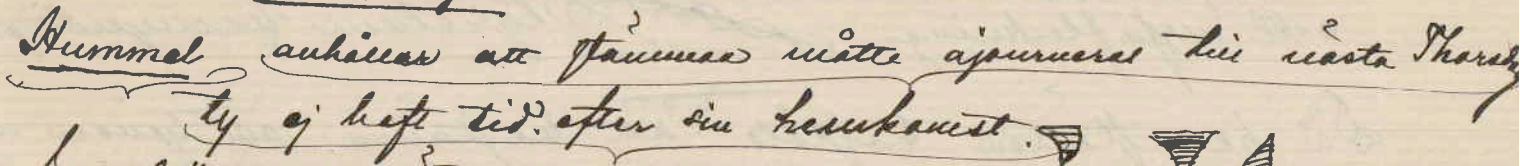 Hummel anhåller att stämman måtte ajourneras till nästa Thorsdag
ty ej haft tid. efter sin hemkomst.